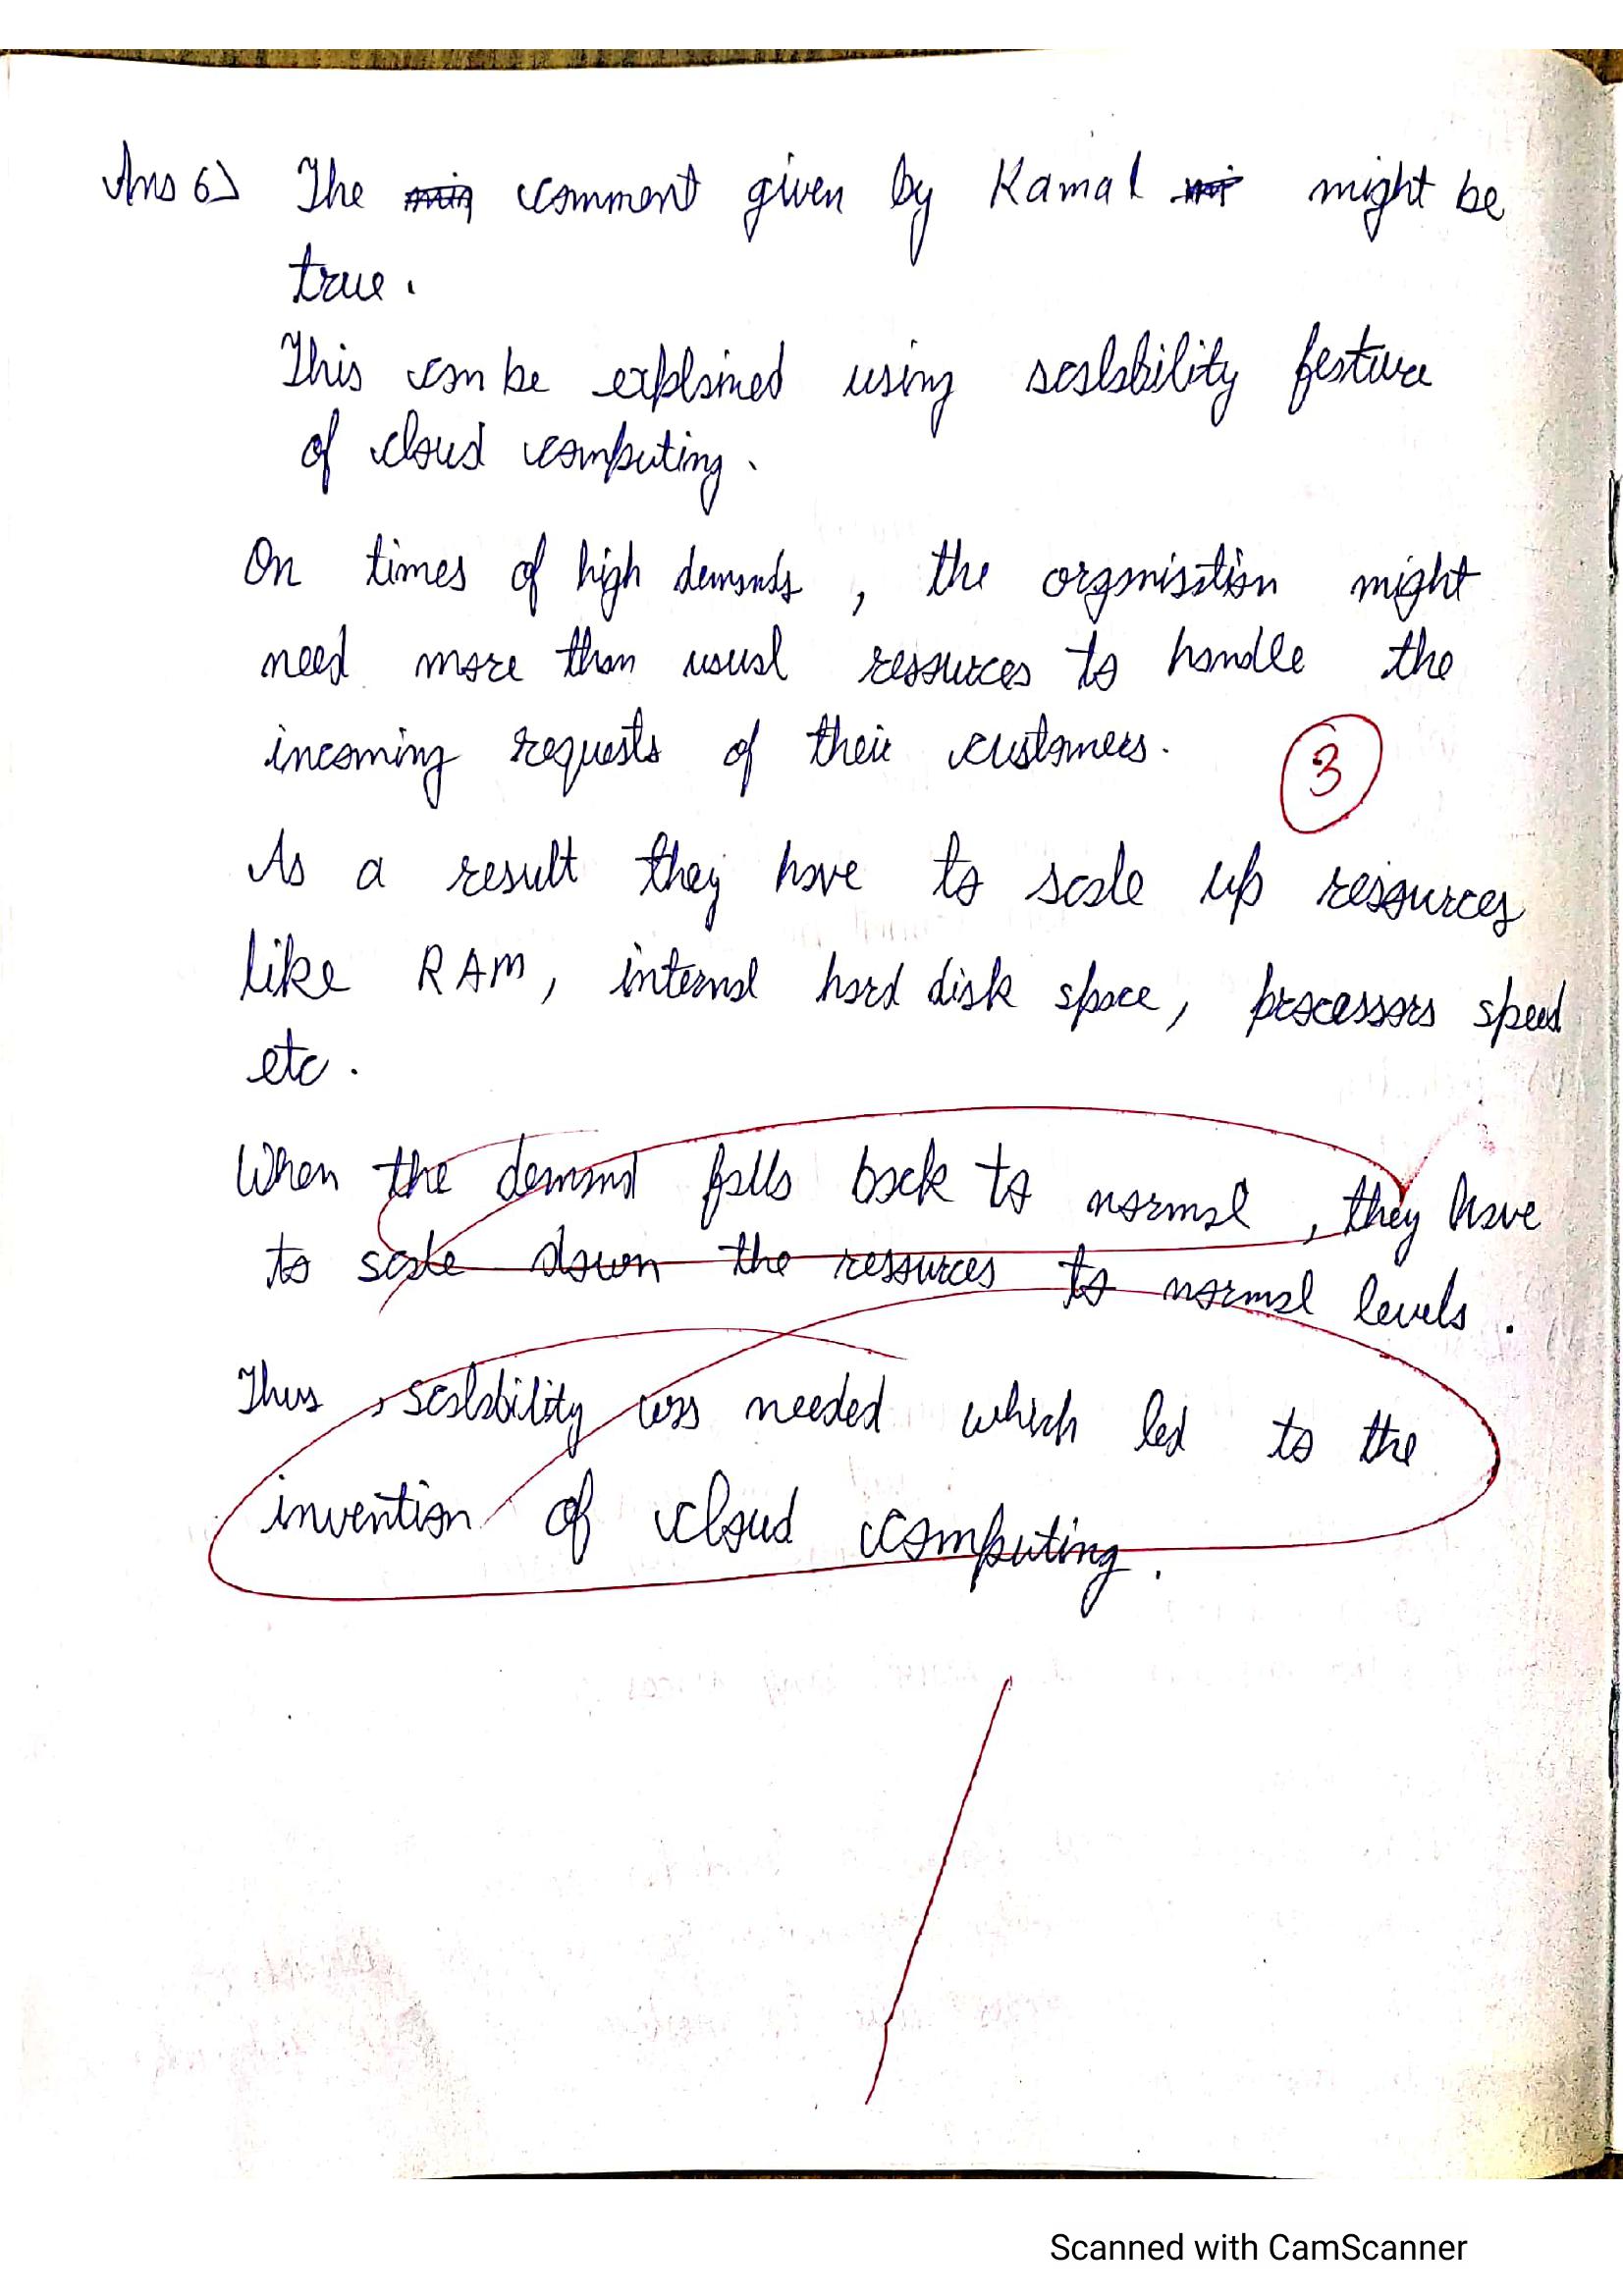 Ans 6) The comment given by Kamal might be
true.
This can be explained using scalability feature
of cloud computing.
On times of high demands, the organisation might
need more than usual resources to handle the
incoming requests of their customers.
3
As a result they have to scale up resources
like RAM, internal hard disk space, processors speed
etc.
When the demand falls back to normal, they have
to scale down the resources to normal levels.
Thus, scalability was needed which led to the
invention of cloud computing.
Scanned with CamScanner